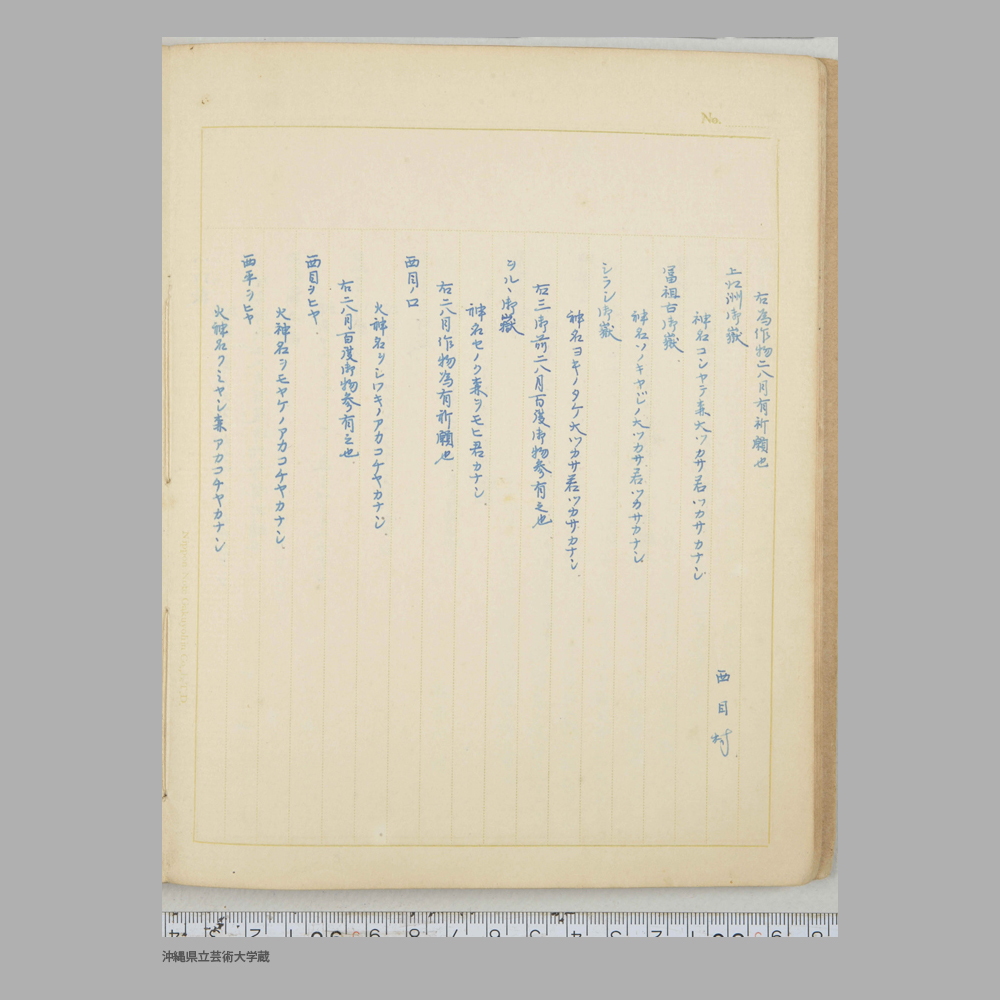 No.
右為作物二八月有祈願也
上江洲御嶽
神名コシヤテ森大ツカサ君ツカサカナシ
西目村
富祖古御嶽
神名ソノキヤビノ大ツカサ君ツカサカナシ
シラシ御嶽
神名ヨキノタケ大ツカサ君ツカサカナシ
右三御前二八月百渡御物参有之也
シル、御嶽
神名セノク森ヲモヒ君カナシ
右二八月作物為有祈願也
西目ノロ
火神名ヲシワキノアカコチヤカナシ
右二八月百渡御物参有之也
西目ヲヒヤ
火神名ヲモヤケノアカコチヤカナシ
西平ヲヒヤ
火神名クミヤシ森アカコチヤカナシ
沖縄県立芸術大学蔵